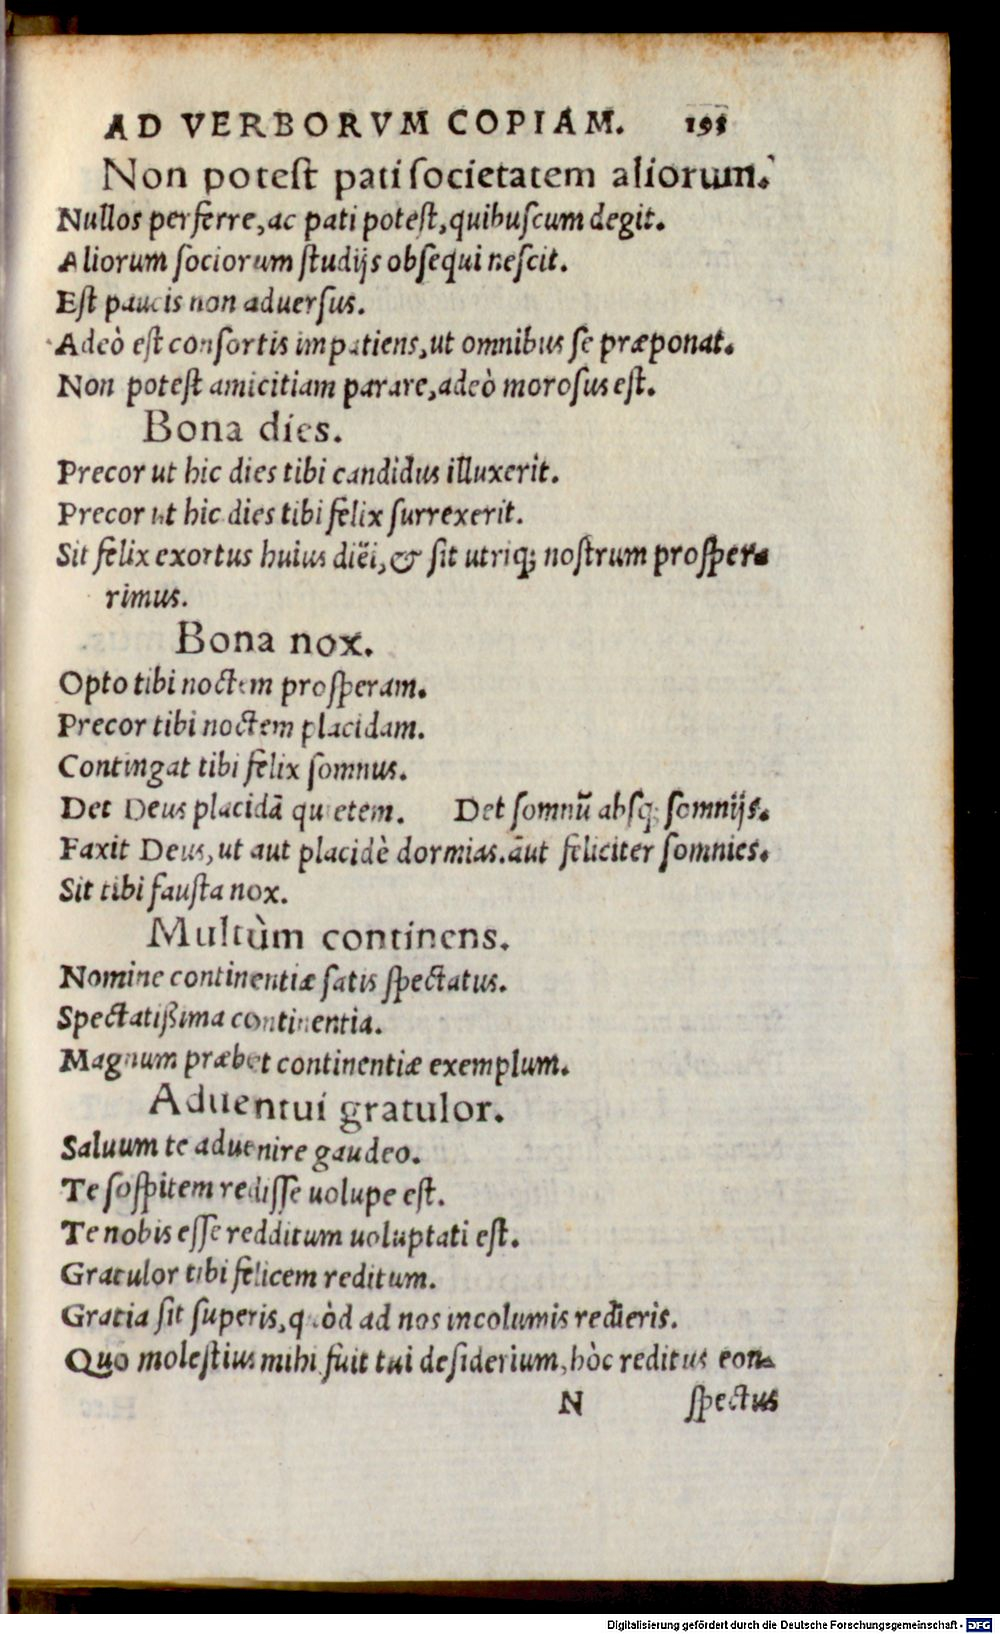 AD VERBORVM COPIAM. 193
Non potest pati societatem aliorum.
Nullos perferre, ac pati potest, quibuscum degit.
Aliorum sociorum studijs obsequi nescit.
Est paucis non aduersus.
Adeò est consortis impatiens, ut omnibus se præponat.
Non potest amicitiam parare, adeò morosus est.
Bona dies.
Precor ut hic dies tibi candidus illuxerit.
Precor ut hic dies tibi felix surrexerit.
Sit felix exortus huius diëi, & sit utriq; nostrum prosper-
rimus.
Bona nox.
Opto tibi noctem prosperam.
Precor tibi noctem placidam.
Contingat tibi felix somnus.
Det Deus placidã quietem. Det somnũ absq; somnijs.
Faxit Deus, ut aut placidè dormias. aut feliciter somnies.
Sit tibi fausta nox.
Multùm continens.
Nomine continentiæ satis spectatus.
Spectatißima continentia.
Magnum præbet continentiæ exemplum.
Aduentui gratulor.
Saluum te aduenire gaudeo.
Te sospitem redisse uolupe est.
Te nobis esse redditum uoluptati est.
Gratulor tibi felicem reditum.
Gratia sit superis, quòd ad nos incolumis redieris.
Quo molestius mihi fuit tui desiderium, hòc reditus con-
N spectus
Digitalisierung gefördert durch die Deutsche Forschungsgemeinschaft - DFG